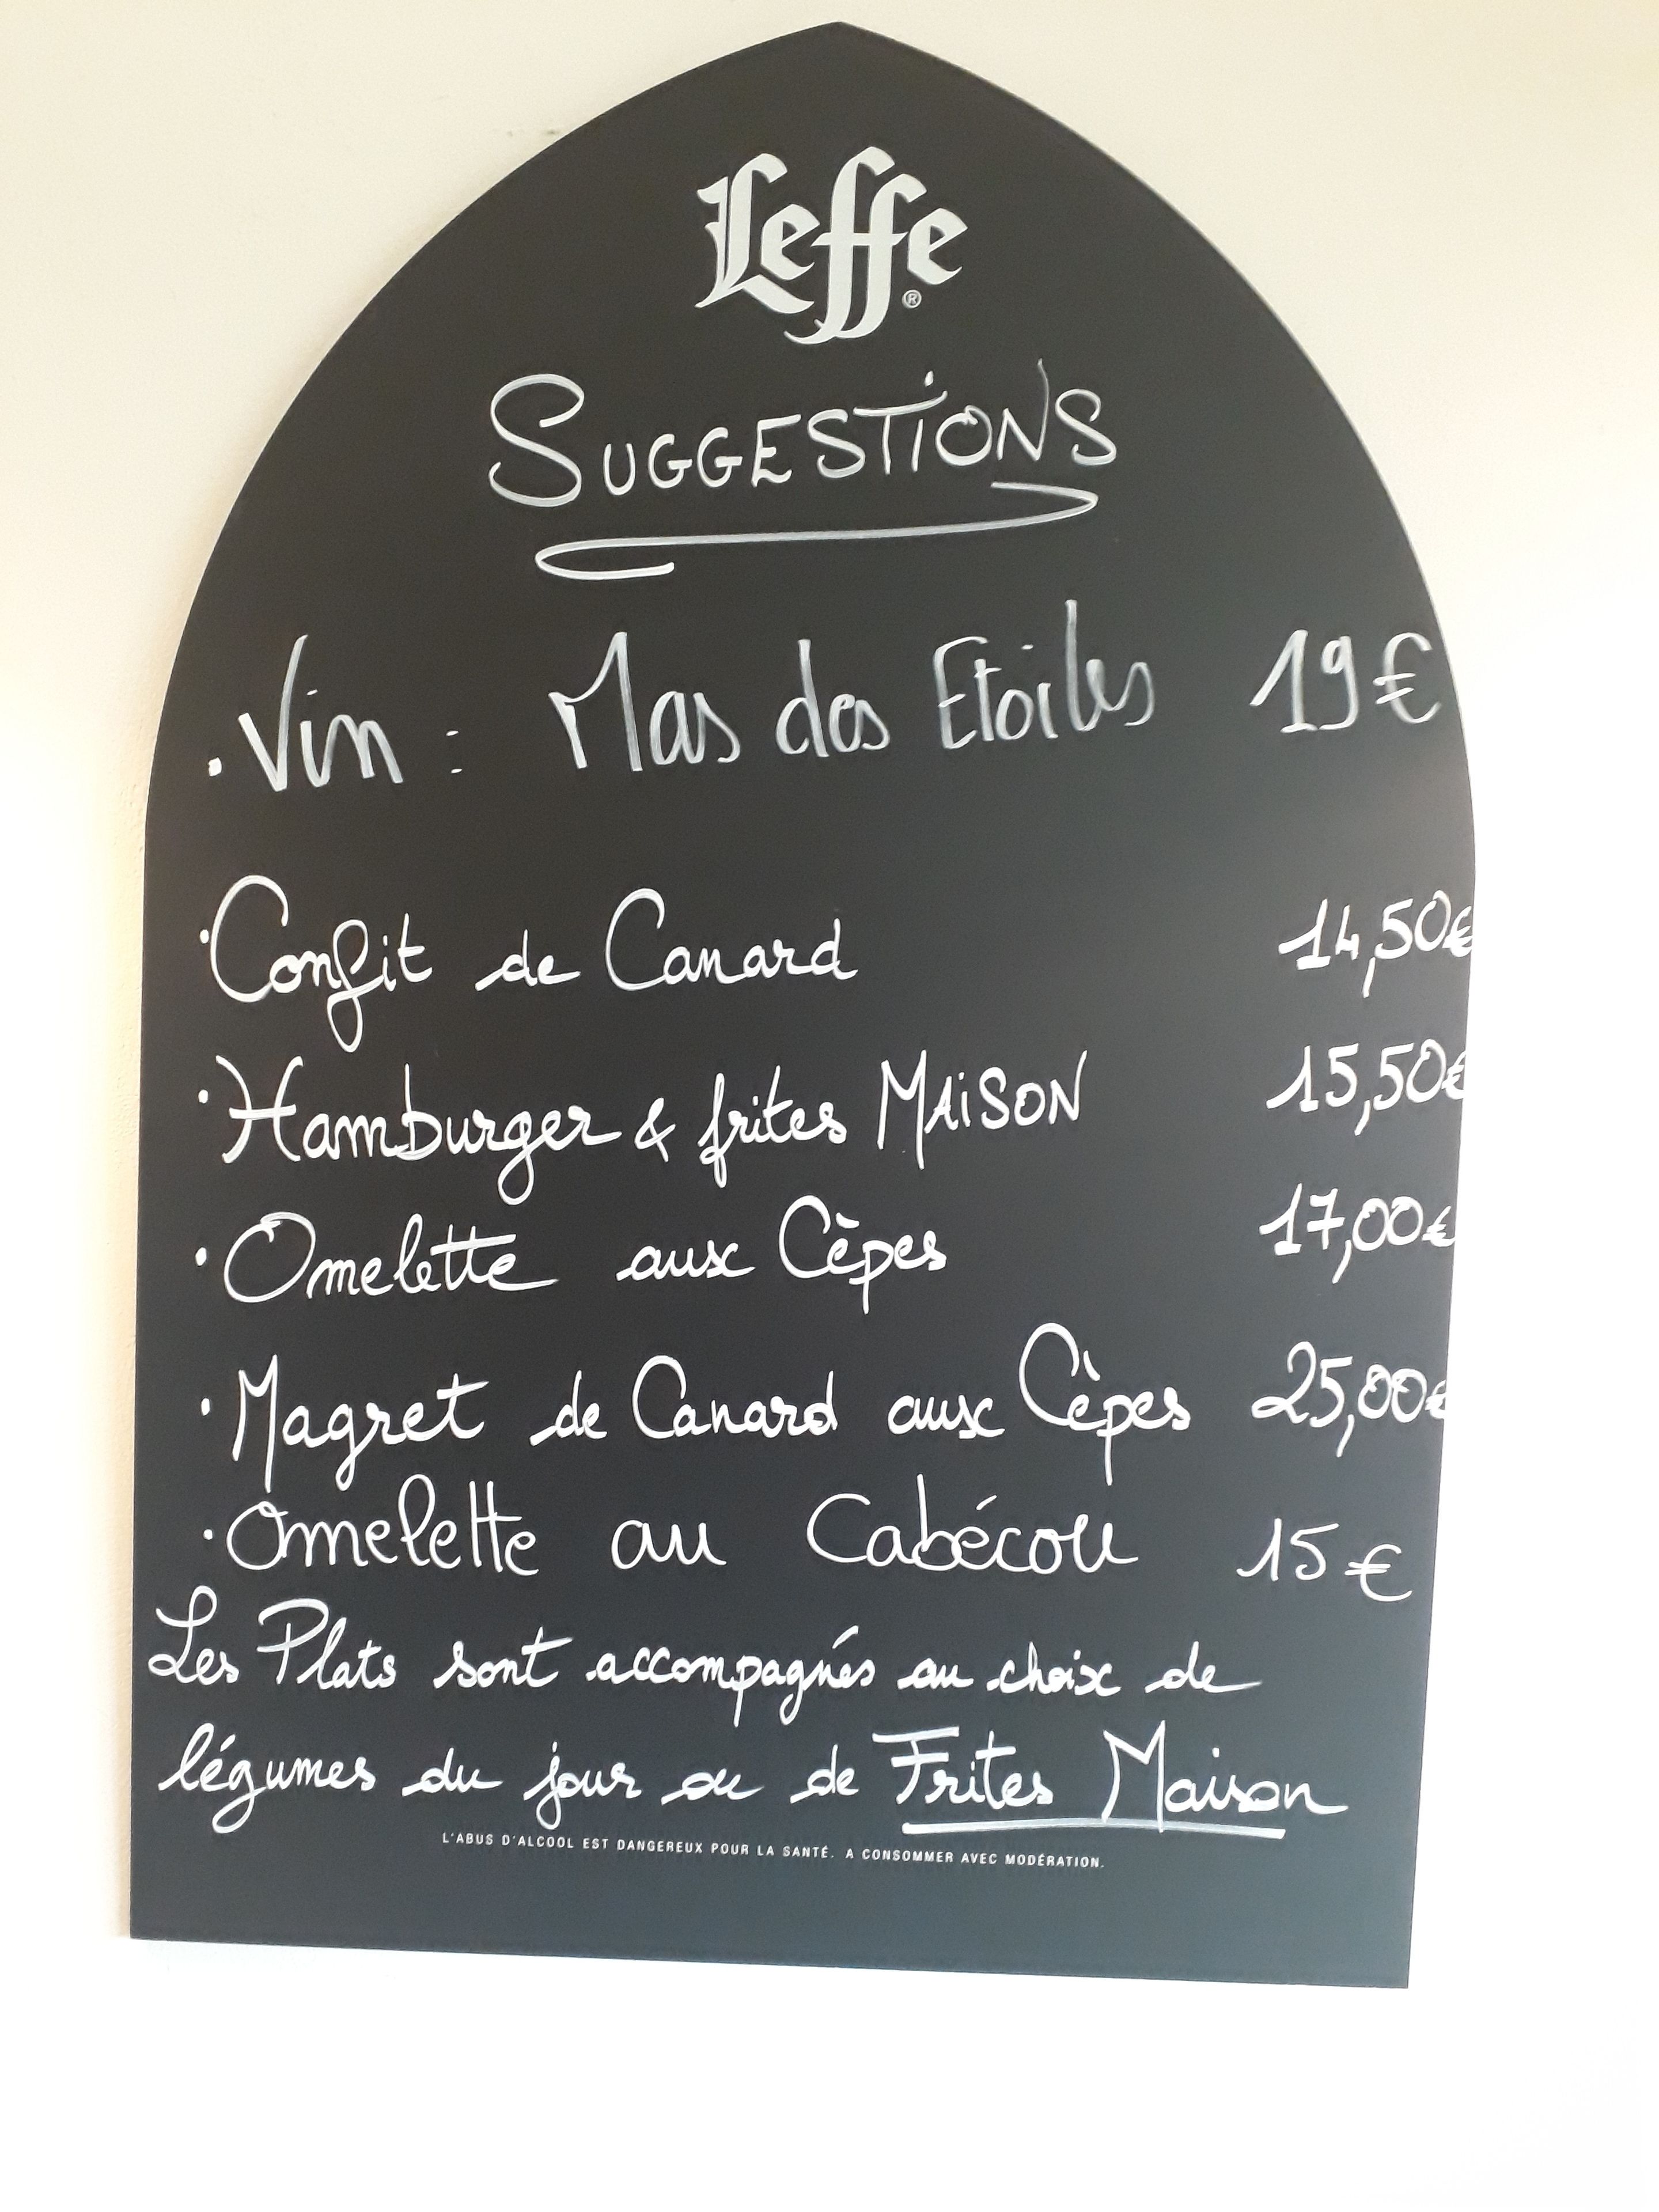 Leffe®
SUGGESTiONS
. Vin : Mas des Etoiles 19€
. Confit de Canard 14,50€
. Hamburger & frites MAiSON 15,50€
. Omelette aux Cèpes 17,00€
. Magret de Canard aux Cèpes 25,00€
. Omelette au Cabécou 15€
Les Plats sont accompagnés au choix de
légumes du jour ou de Frites Maison
L'ABUS D'ALCOOL EST DANGEREUX POUR LA SANTÉ. A CONSOMMER AVEC MODÉRATION.